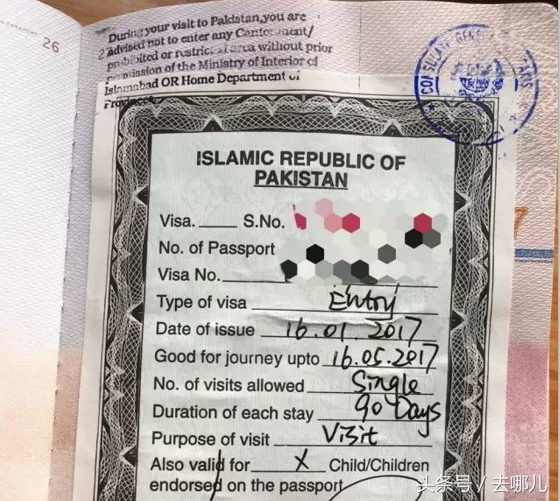 26
During your visit to Pakistan, you are
advised not to enter any Cantonment/
prohibited or restricted area without prior
permission of the Ministry of Interior of
Islamabad OR Home Department of
Province
CONSULATE GENERAL
ISLAMIC REPUBLIC OF
PAKISTAN
Visa. S.No.
No. of Passport
Visa No.
Type of visa Entry
Date of issue 16.01.2017
Good for journey upto 16.05.2017
No. of visits allowed Single
Duration of each stay 90 Days
Purpose of visit Visit
Also valid for X Child/Children
endorsed on the passport
头条号 / 去哪儿